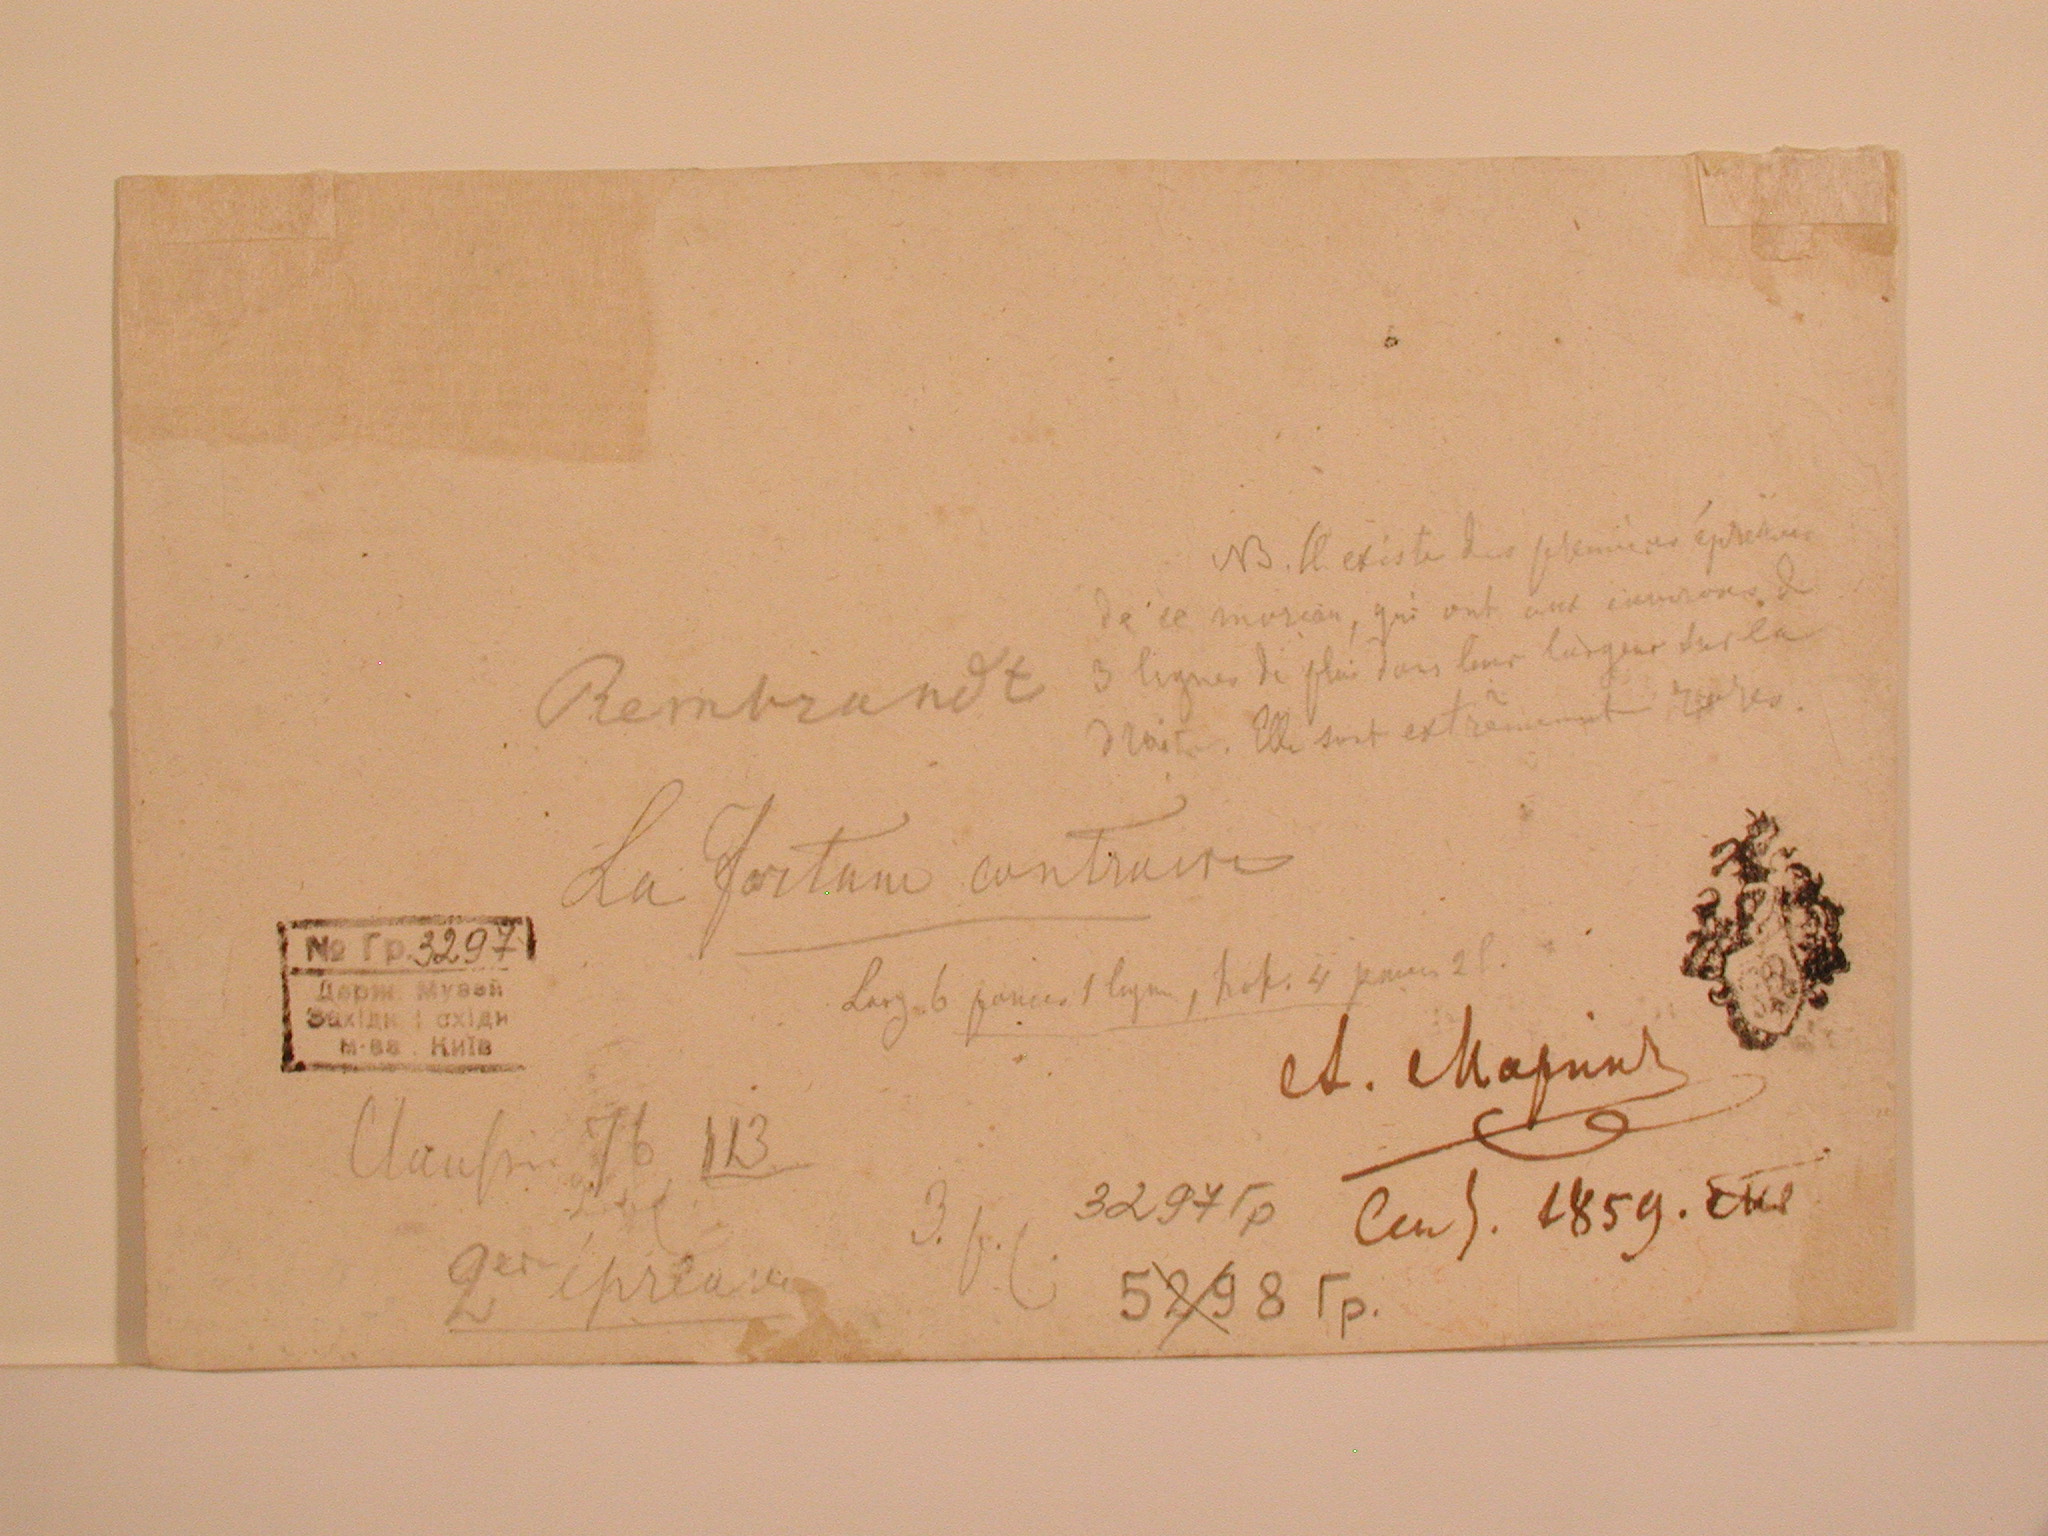 NB. Il existe des premières épreuves
de ce morceau, qui ont aux environs de
3 lignes de plus dans leur largeur sur la
droite. Elle sont extrêmement rares.
Rembrandt
La Fortune contraire
Larg. 6 pouces 1 ligne, haut. 4 pouces 2 l.
№ Гр. 3297
Держ. Музей
Західн. і східн
м-ва. Київ
А. Маринъ
Claussin 76 113
3297 Гр
1859.
2er épreuve
5298 Гр.